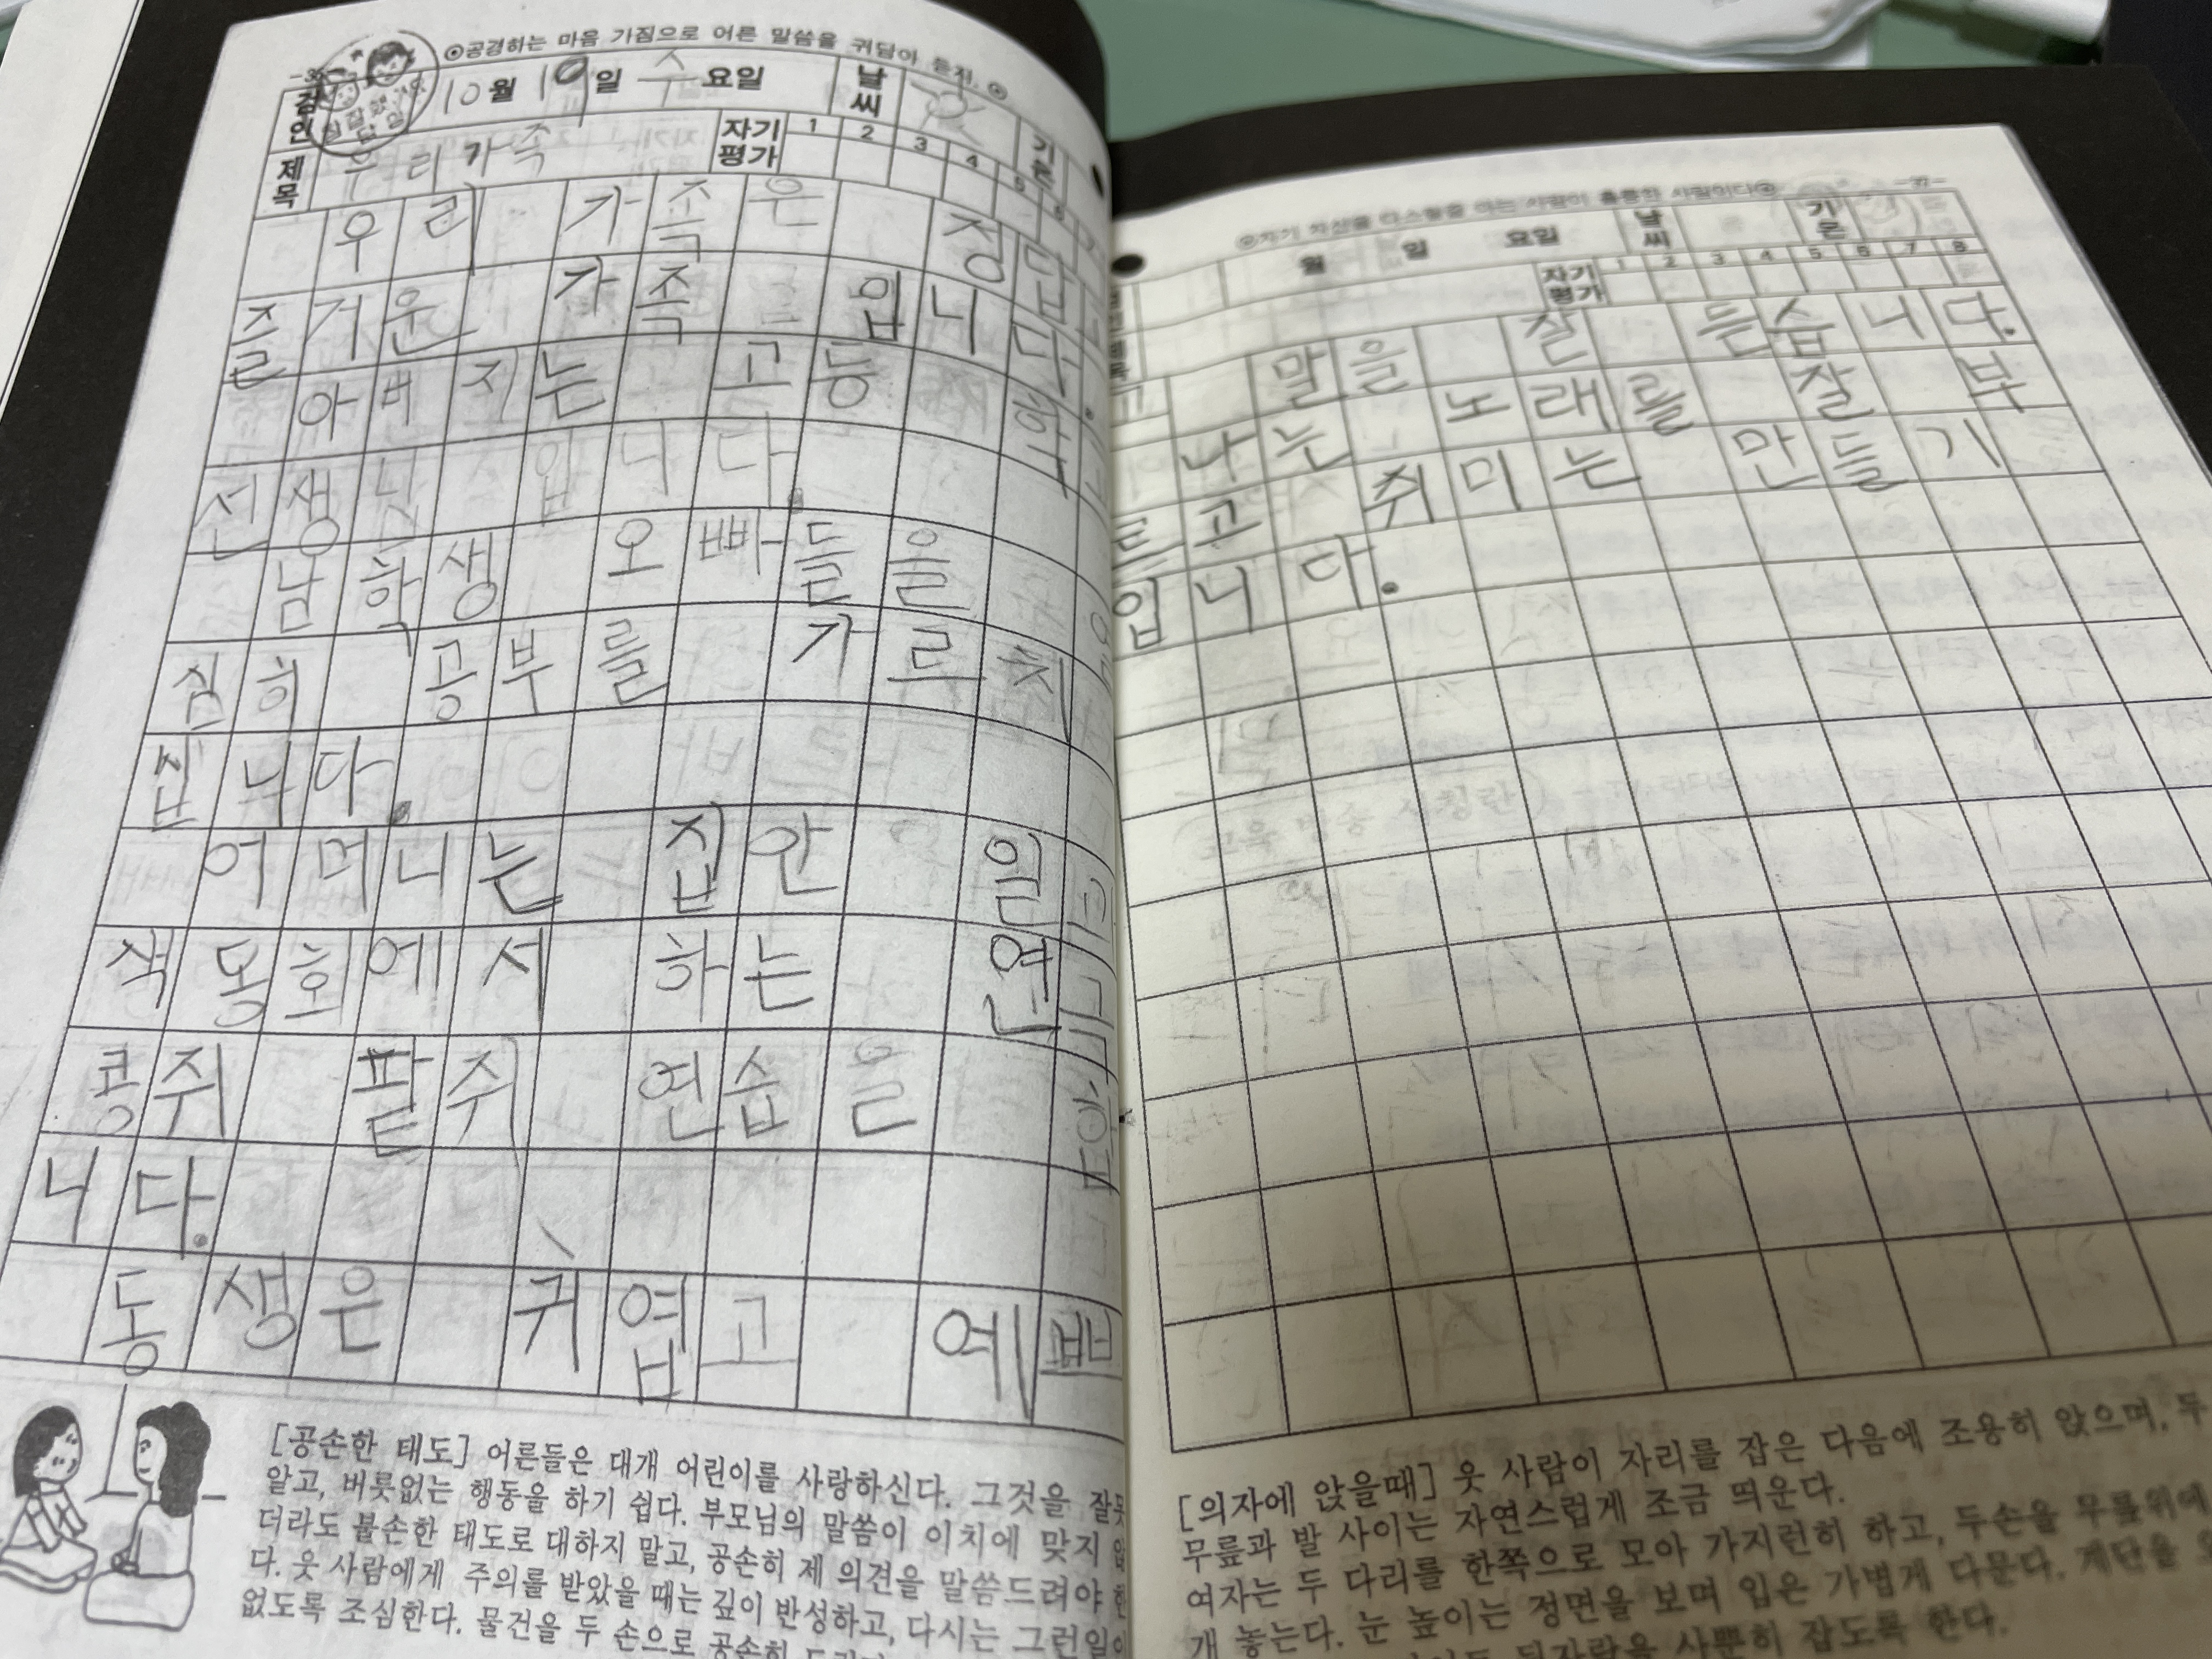 ⊙공경하는 마음 가짐으로 어른 말씀을 귀담아 듣자.⊙
검인
10월 19일 수요일 날씨 기온
제목 우리 가족 자기평가 1 2 3 4 5 6
우리 가족은 정답
즐거운 가족 입니다.
아버지는 고등 학
선생님 입니다.
남학생 오빠들을
심히 공부를 가르치
십니다.
어머니는 집안 일
색동회에서 하는 연극
콩쥐 팥쥐 연습을 합
니다.
동생은 귀엽고 예쁘
[공손한 태도] 어른들은 대개 어린이를 사랑하신다. 그것을 잘못
알고, 버릇없는 행동을 하기 쉽다. 부모님의 말씀이 이치에 맞지
더라도 불손한 태도로 대하지 말고, 공손히 제 의견을 말씀드려야
다. 웃 사람에게 주의를 받았을 때는 깊이 반성하고, 다시는 그런일이
없도록 조심한다. 물건을 두 손으로 공손히
-37-
월 일 요일 날씨 기온
자기평가 1 2 3 4 5 6 7 8
고 말을 잘 듣습니다.
나는 노래를 잘 부
르고 취미는 만들기
입니다.
[의자에 앉을때] 웃 사람이 자리를 잡은 다음에 조용히 앉으며, 두
무릎과 발 사이는 자연스럽게 조금 띄운다.
여자는 두 다리를 한쪽으로 모아 가지런히 하고, 두손을 무릎위에
개 놓는다. 눈 높이는 정면을 보며 입은 가볍게 다문다. 계단을
사뿐히 잡도록 한다.